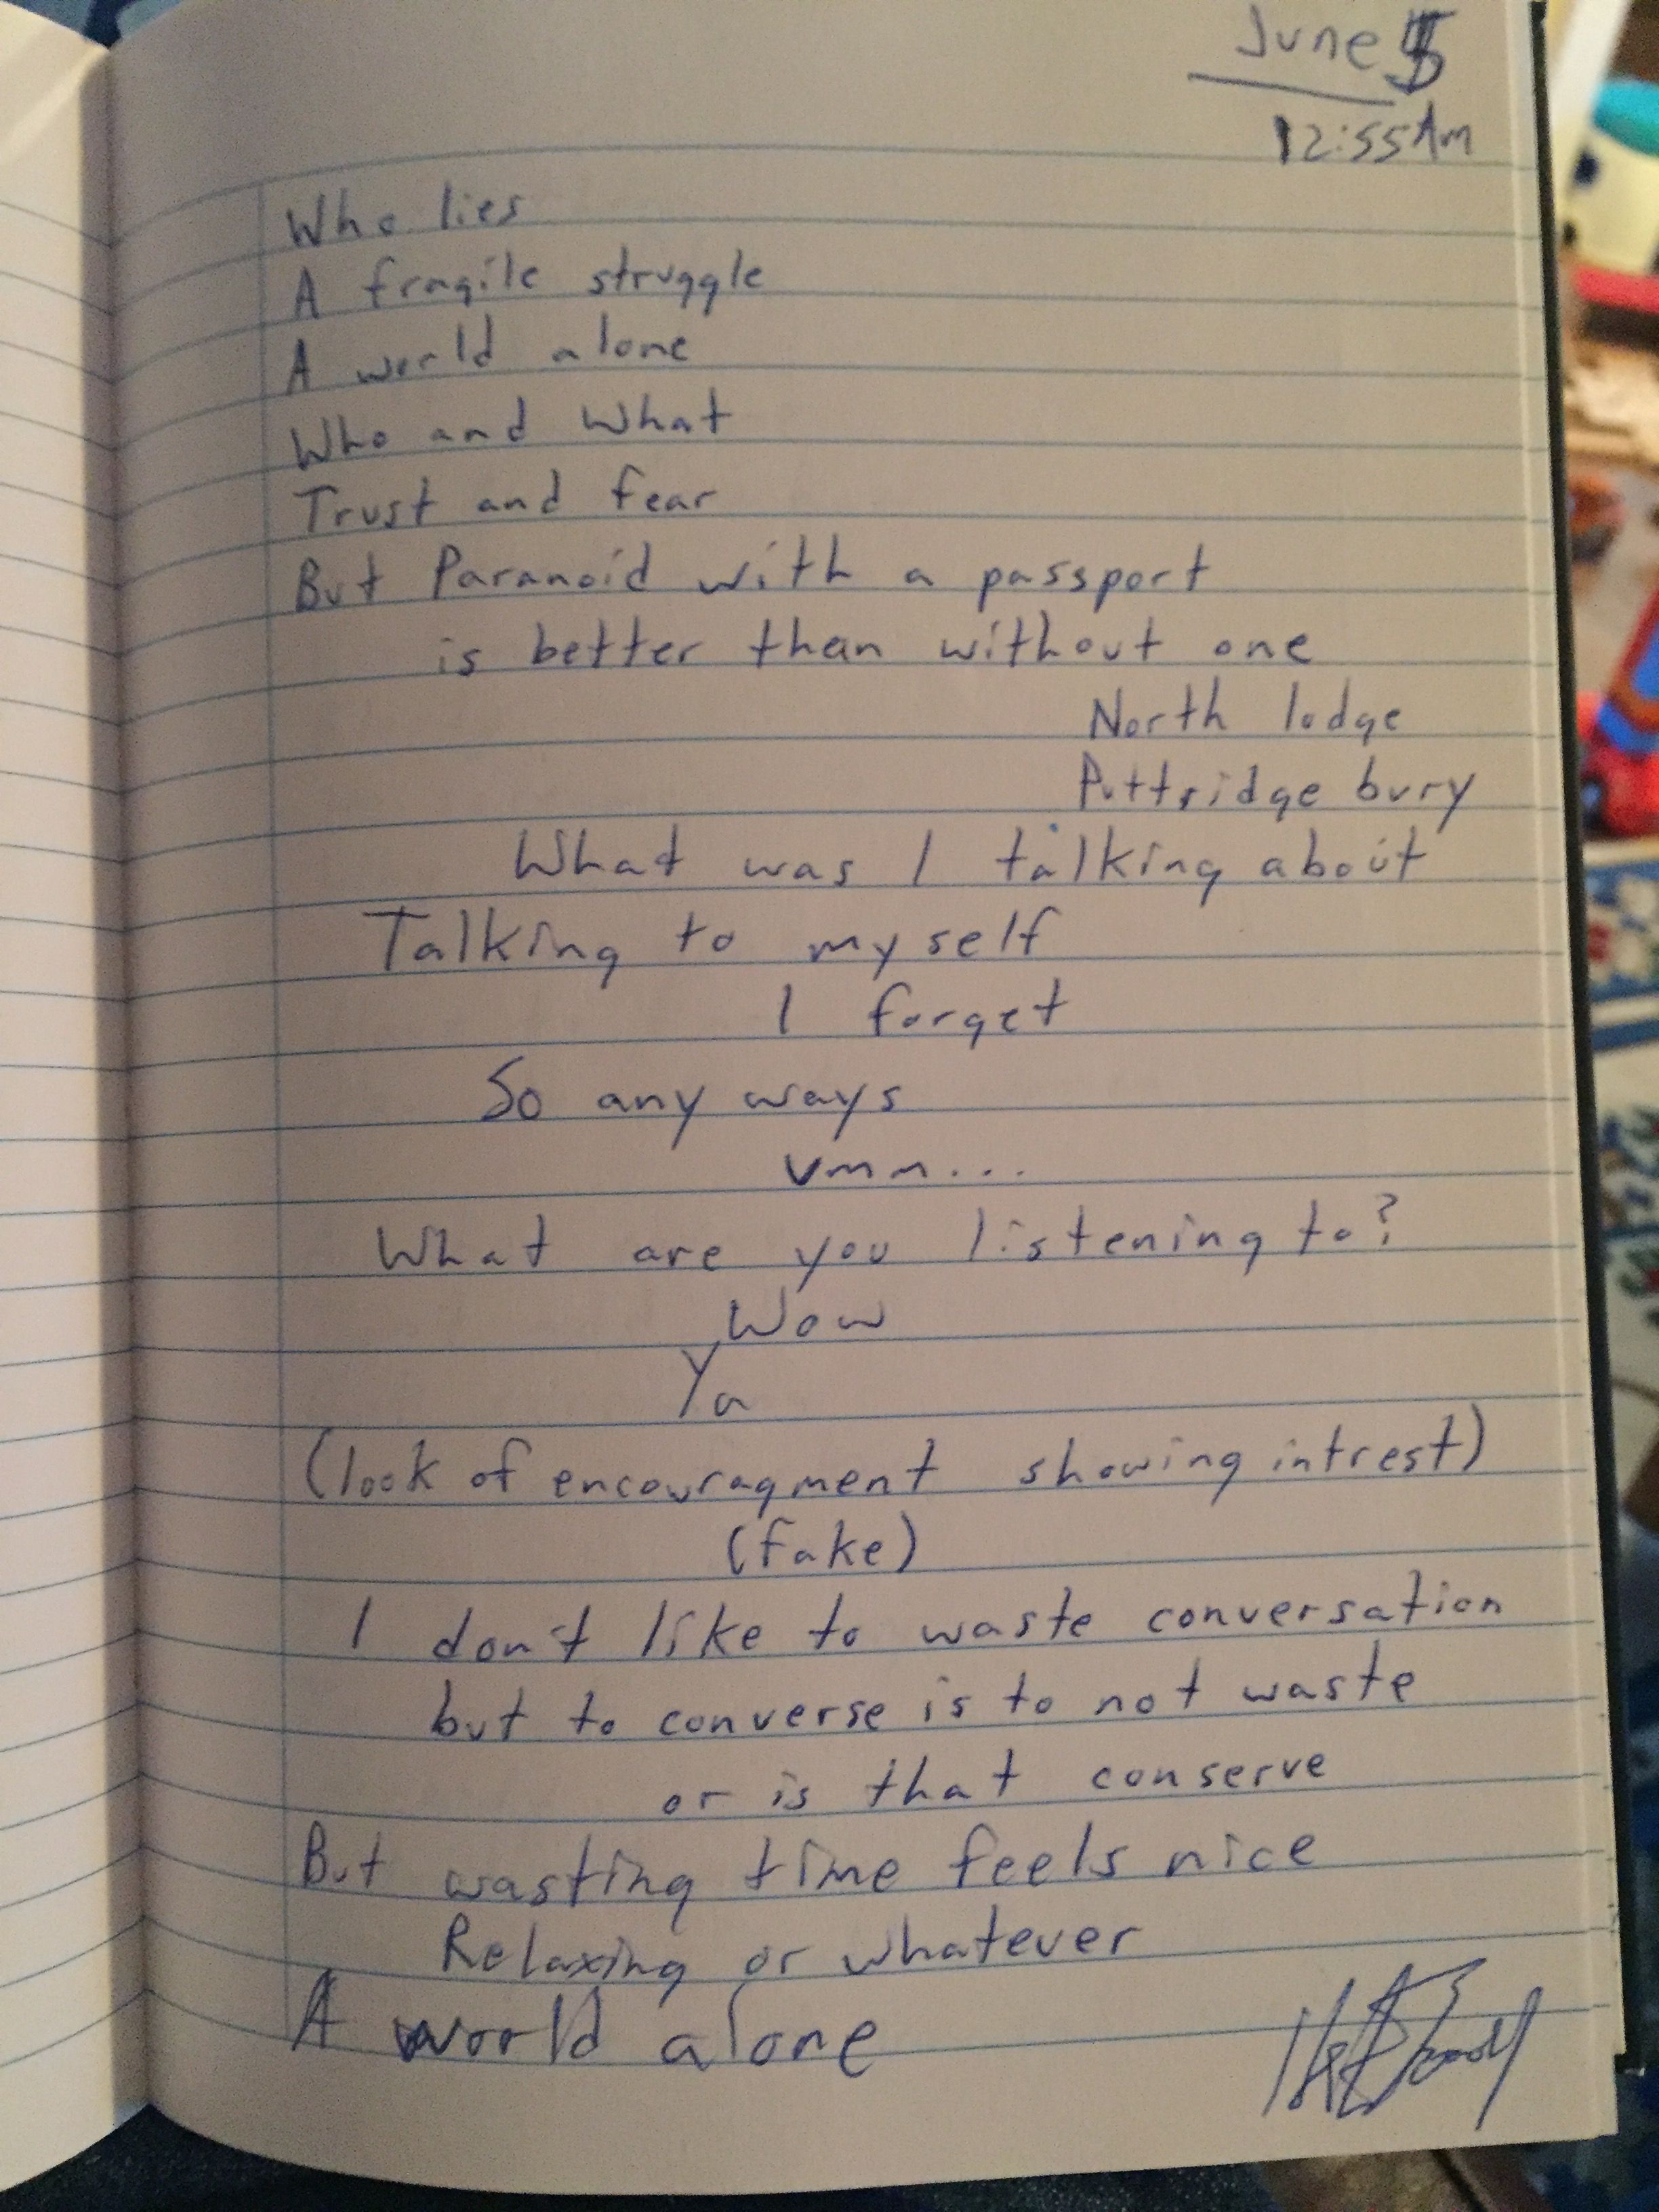 June 5
12:55 Am
Who lies
A fragile struggle
A world alone
Who and What
Trust and fear
But Paranoid with a passport
is better than without one
North lodge
Puttridge bury
What was I talking about
Talking to myself
I forget
So any ways
umm...
What are you listening to?
Wow
Ya
(look of encouragment showing intrest)
(fake)
I don't like to waste conversation
but to converse is to not waste
or is that conserve
But wasting time feels nice
Relaxing or whatever
A world alone